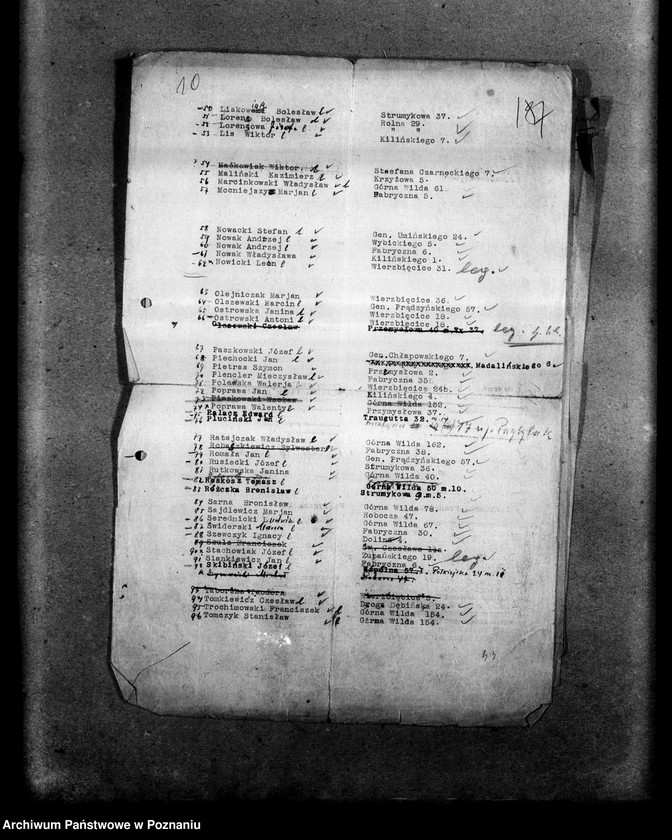 10
187
50 Liskowski Bolesław Strumykowa 37.
51 Lorenc Bolesław Rolna 29.
52 Lorencowa Józefa " "
53 Lis Wiktor Kilińskiego 7.
54 Maćkowiak Wiktor.
55 Maliński Kazimierz Stefana Czarneckiego 7.
56 Marcinkowski Władysław Krzyżowa 5.
57 Mocniejszy Marjan Górna Wilda 61.
Fabryczna 5.
58 Nowacki Stefan Gen. Umińskiego 24.
59 Nowak Andrzej Wybickiego 5.
60 Nowak Andrzej Fabryczna 6.
61 Nowak Władysława Kilińskiego 1.
62 Nowicki Leon Wierzbięcice 31. leg.
63 Olejniczak Marjan Wierzbięcice 36.
64 Olszewski Marcin Gen. Prądzyńskiego 57.
65 Ostrowska Janina Wierzbięcice 18.
66 Ostrowski Antoni Wierzbięcice 18.
Olszewski Czesław Przemysłowa 40 m. 37. leg.
67 Paszkowski Józef Gen. Chłapowskiego 7.
68 Piechocki Jan Madalińskiego 6.
69 Pietras Szymon Przemysłowa 2.
70 Plencler Mieczysław Fabryczna 35
71 Polewska Walerja Wierzbięcice 24b.
72 Poprawa Jan Kilińskiego 4.
73 Piaskowski Wacław Górna Wilda 152.
74 Poprawa Walenty Przymysłowa 37.
75 Palacz Edward Traugutta 32.
76 Pluciński Jan
77 Ratajczak Władysław Górna Wilda 162.
78 Robaszkiewicz Sylwester Fabryczna 38.
79 Romska Jan Gen. Prądzyńskiego 57.
80 Rusiecki Józef Strumykowa 36.
81 Rutkowska Janina Górna Wilda 40.
82 Ruskosz Tomasz Górna Wilda 50 m.10.
83 Różczka Bronisław Strumykowa 9.m.5.
84 Sarna Bronisław Górna Wilda 78.
85 Sajdlewicz Marjan Robocza 47.
86 Serednicki Ludwik Górna Wilda 67.
87 Świderski Fabryczna 30.
88 Szewczyk Ignacy Dolina 4.
89 Szulc Franciszek Św. Czesława
90 Stachowiak Józef Żupańskiego 19. leg.
91 Siankiewicz Jan Fabryczna 6.
92 Skibiński Józef Wspólna 57. 24 m. 10
93 Taborska Teodora Wierzbięcice 5.
94 Tomkiewicz Czesław Droga Dębińska 24.
95 Trochimowski Franciszek Górna Wilda 154.
96 Tomczyk Stanisław Górna Wilda 154.
Archiwum Państwowe w Poznaniu